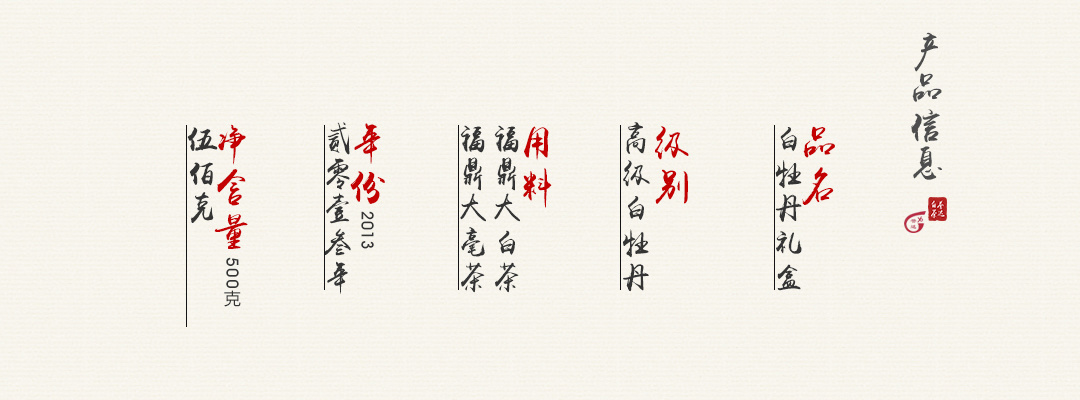 产品信息
品名
白牡丹礼盒
级别
高级白牡丹
用料
福鼎大白茶
福鼎大毫茶
年份 2013
贰零壹叁年
净含量 500克
伍佰克